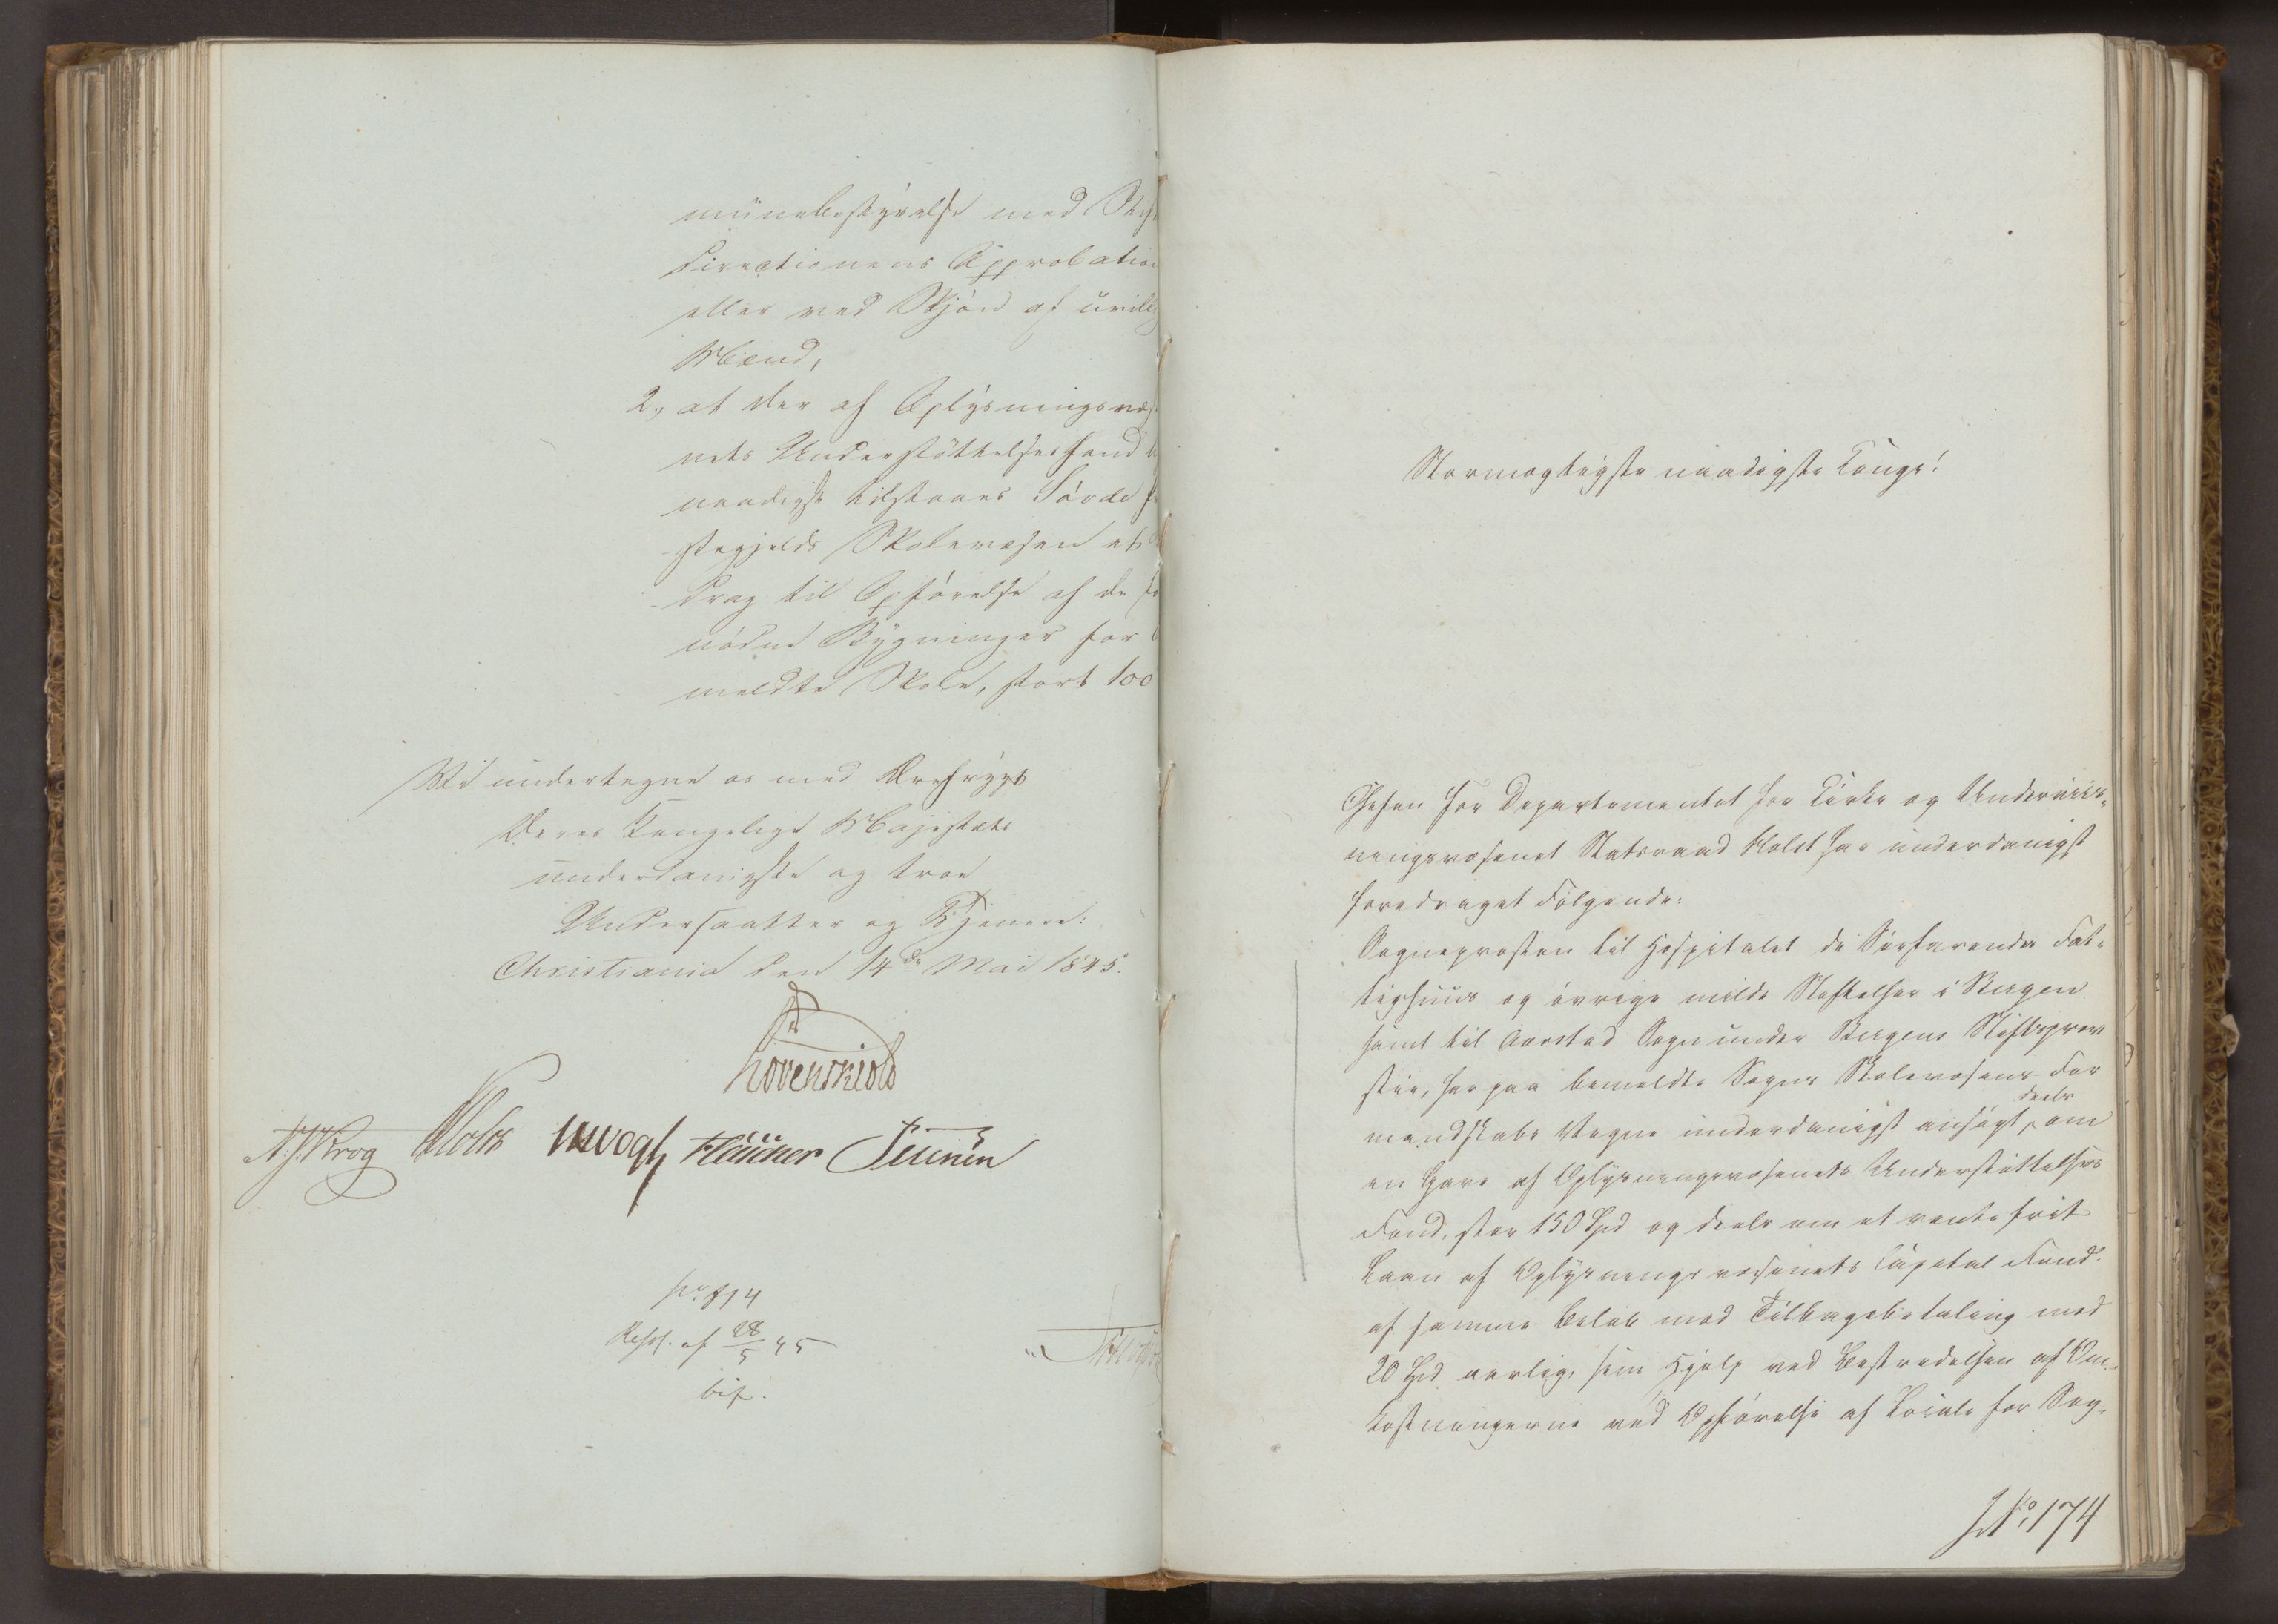 munebestyrelse med Stift
directionens Approbation
eller ved Skjøn af uvill
Mænd,
2, at der af Oplysningsvæs
nets Understøttelsesfond
naadigst tilstaaes Førde
stegjelds Skolevæsen et
drag til Opførelse af de
nødne Bygninger for
meldte Skole, stort 100
Vi undertegne os med Ærefrygt
Deres Kongelige Majestæts
underdanigste og troe
Undersaatter og Tjenere:
Christiania den 14de Mai 1845.
Løvenskiold
N. J. Krog Holst Vogt
No. 814
Resol. af 28/5 45
bif.
Stormægtigste naadigste Konge!
Chefen for Departementet for Kirke og Underviis-
ningsvæsenet Statsraad Holst har underdanigst
foredraget Følgende:
Sognepresten til Hospitalet de Søefarendes Fat-
tighuus og øvrige milde Stiftelser i Bergen
samt til Aarstad Sogn under Bergens Stiftsprov
stie, har paa bemeldte Sogns Skolevæsens For
mandskabs Vegne underdanigst ansøgt, deels om
en Gave af Oplysningsvæsenets Understøttelses
Fond, stor 150 Spd og deels om et rentefrit
Laan af Oplysningsvæsenets Capital Fond
af samme Beløb mod Tilbagebetaling med
20 Spd aarlig, som Hjælp ved Bestridelsen af Om-
kostningerne ved Opførelse af Locale for Sog-
No. 174